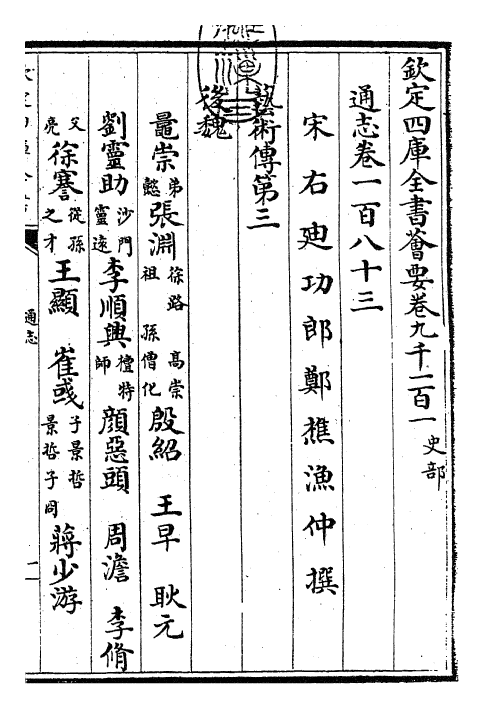 欽定四庫全書薈要卷九千一百一 史部
通志卷一百八十三
宋右廸功郎鄭樵漁仲撰
藝術傳第三
後魏
鼂崇弟懿 張淵徐路 高崇祖 孫僧化 殷紹 王早 耿元
劉靈助沙門靈遠 李順興檀特師 顔惡頭 周澹 李脩
徐謇從孫之才 又亮 王顯 崔彧子景哲 景哲子冏 蔣少游
通志
一